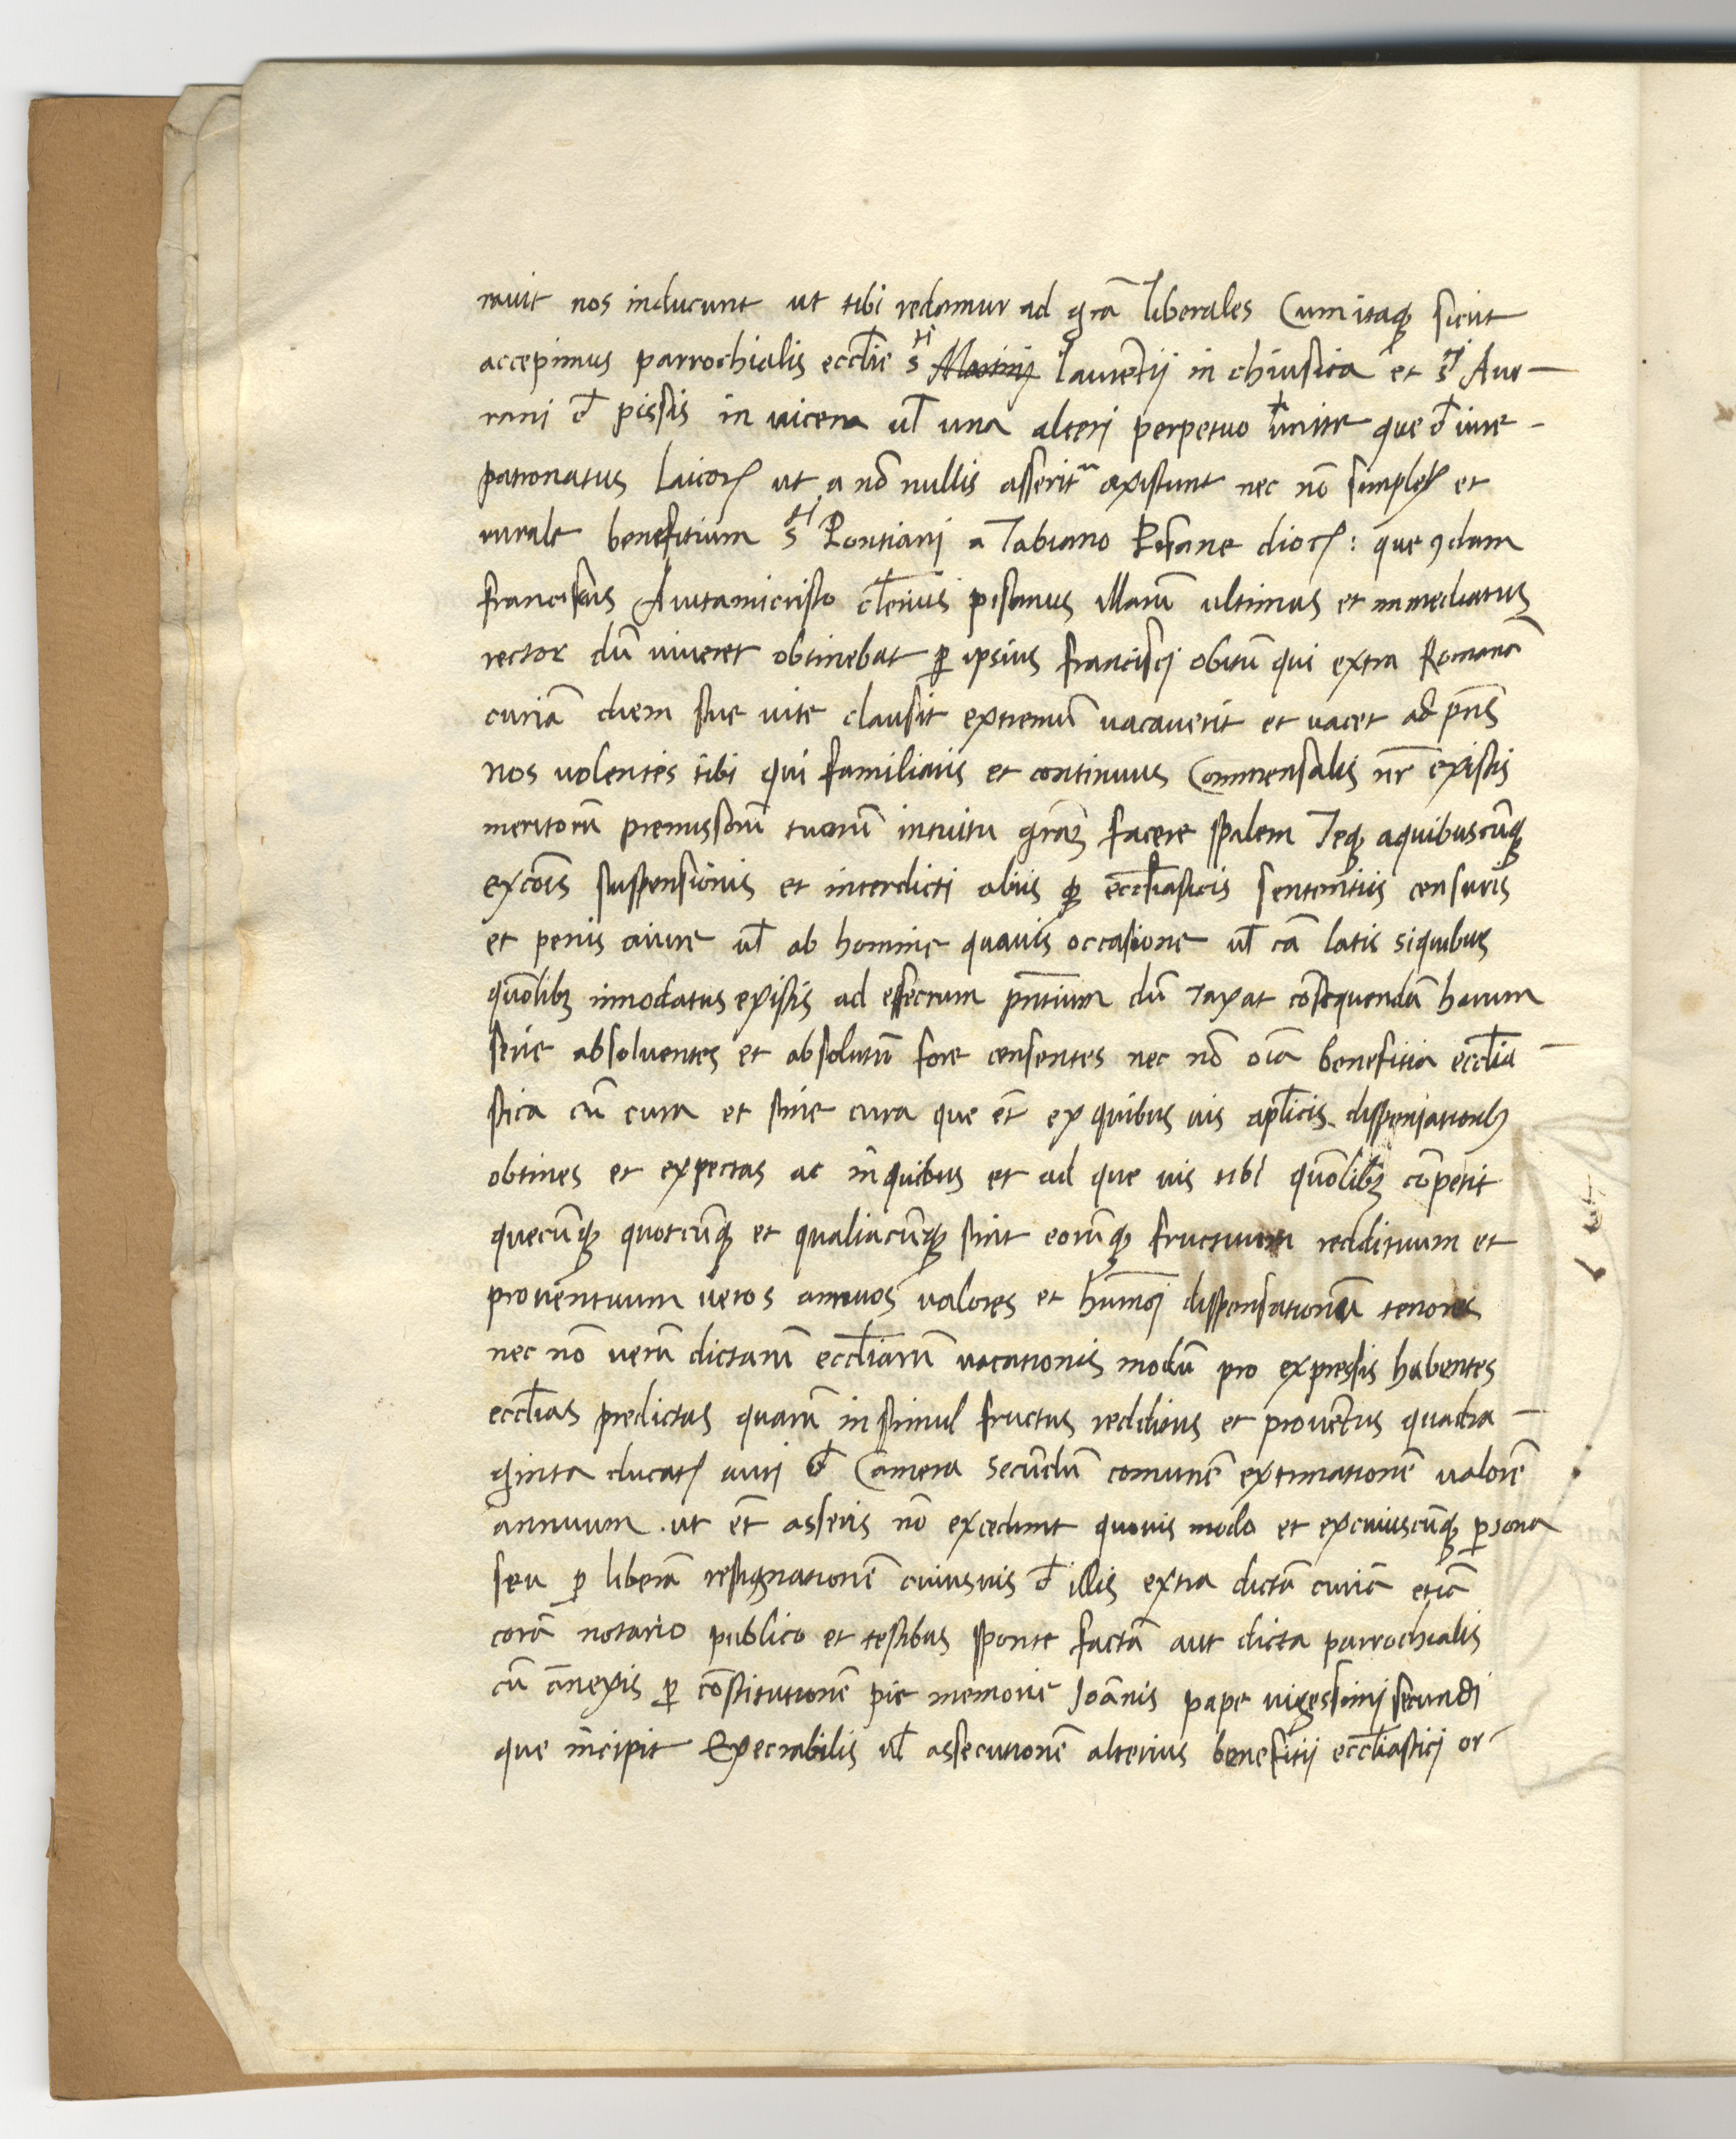 rauit nos inducunt ut tibi redamur ad grã liberales Cum itaqꝫ sicut
accepimus parrochialis ecclie sti Martinij laurẽtij in chinsica et sti Aur-
rani đ pissis in uicena ul̃ una alteri perpetuo unite que đ iure -
patronatus laicoꝝ ut a nõ nullis asserit᷑ existunt nec nõ simplex et
rurale benefitium sti Pontianj a Tabiano Pisane dioc̃: que ꝯdam
franciscus Auitamicristo cl̃ericus pisanus illarũ ultimus et immediatus
rector dũ uiueret obtinebat ꝑ ipsius francisci obitũ qui extra Romanã
curiã diem sue uite clausit extremũ vacauerit et uacet ad pñs
Nos uolentes tibi qui familiaris et continuus Commensalis nr̃ existis
meritorũ premissorũ tuorũ intuitu grãm facere spalem Teqꝫ aquibuscũqꝫ
excõis suspensionis et interdicti aliis qꝫ eccl̃iasticis sententiis censuris
et penis aiure ul̃ ab homine quauis occasione ul̃ cã latis siquibus
quõlibꝫ innodatus existis ad effectum pñtium dũ taxat cõsequendũ harum
serie absoluentes et absolutũ fore censentes nec nõ oĩa benefitia eccl̃ia-
stica cũ cura et sine cura que et̃ ex quibus uis apl̃icis dispensationibꝫ
obtines et expectas ac inquibus et ad que ius tibi quõlibꝫ cõpetit
quecũqꝫ quotcũqꝫ et qualiacũqꝫ sint eorũqꝫ fructuum reddituum et
prouentuum ueros annuos valores et hũmõi dispensationũ tenores
nec nõ uerũ dictarũ eccl̃iarũ vacationis modũ pro expressis habentes
eccl̃ias predictas quarũ insimul fructus redditus et prouẽtus quadra-
ginta ducatꝝ auri đ Camera Secũdũ comunẽ extimationẽ valorẽ
annuum ut et̃ asseris nõ excedunt quouis modo et excuiuscũqꝫ ꝑsona
seu ꝑ liberã resignationẽ cuiusuis đ illis extra dictã curiã etiã
corã notario publico et testibus sponte factã aut dicta parrochialis
cũ ãnexis ꝑ cõstitutionẽ pie memorie Joãnis pape uigessimi secundi
que incipit Execrabilis ul̃ assecutionẽ alterius benefitij eccl̃iasticj or-